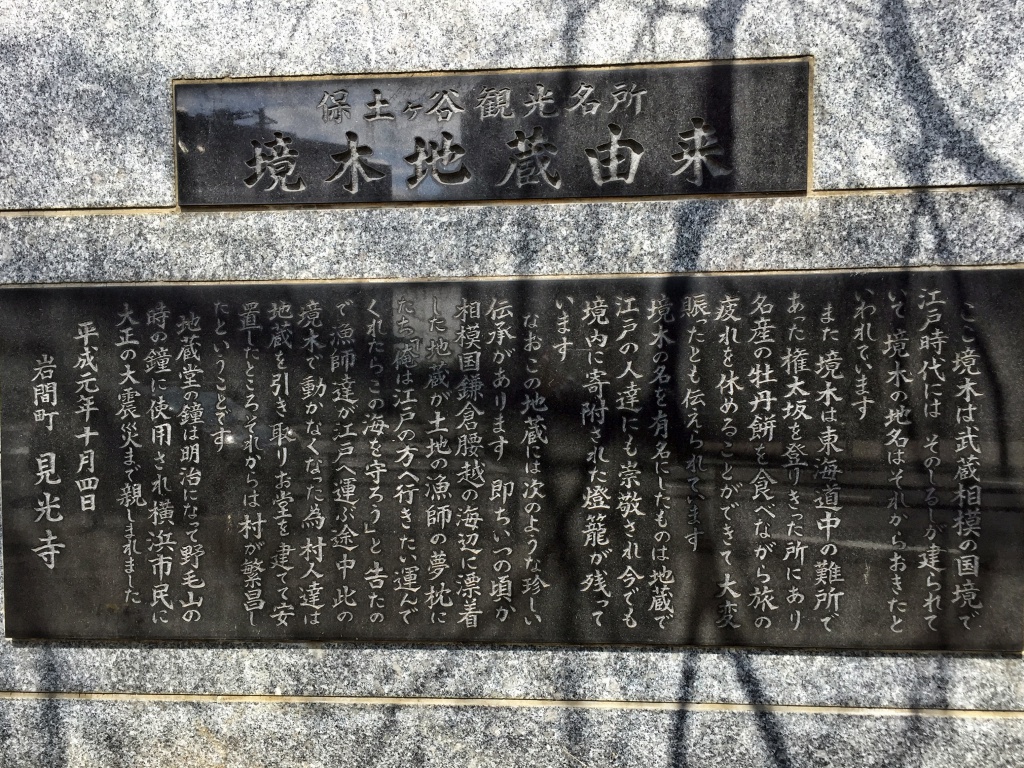 保土ヶ谷観光名所
境木地蔵由来
ここ境木は武蔵相模の国境で
江戸時代には そのしるしが建られて
いて 境木の地名はそれからおきたと
いわれています
また 境木は東海道中の難所で
あった権太坂を登りきた所にあり
名産の牡丹餅を食べながら旅の
疲れを休めることができて大変
賑たとも伝えられています
境木の名を有名にしたものは地蔵で
江戸の人達にも崇敬され今でも
境内に寄附された燈籠が残って
います
なおこの地蔵には次のような珍しい
伝承があります 即ちいつの頃か
相模国鎌倉腰越の海辺に漂着
した地蔵が土地の漁師の夢枕に
たち「俺は江戸の方へ行きたい運んで
くれたらこの海を守ろう」と告たの
で漁師達が江戸へ運ぶ途中此の
境木で動かなくなった為村人達は
地蔵を引き取りお堂を建てて安
置したところそれからは村が繁昌し
たということです
地蔵堂の鐘は明治になって野毛山の
時の鐘に使用され横浜市民に
大正の大震災まで親しまれました
平成元年十月四日
岩間町 見光寺